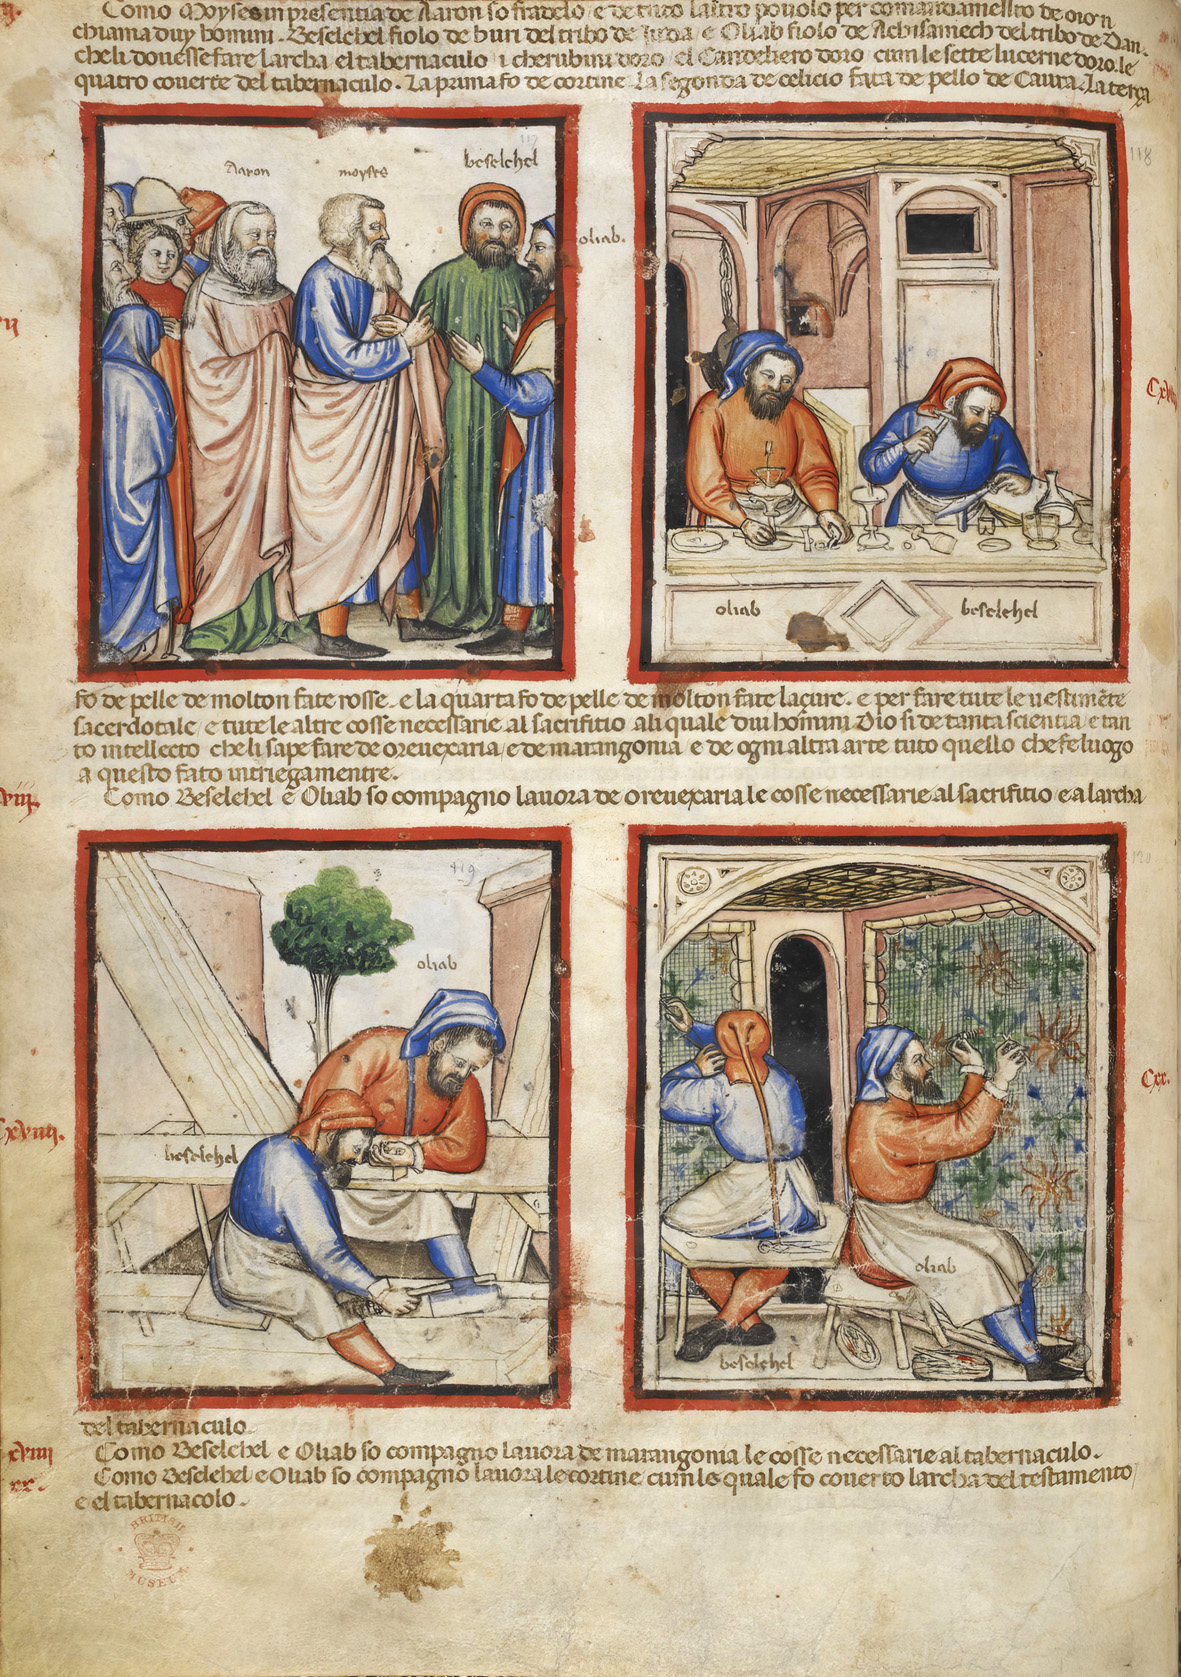 Como Moyses in presentia de Aaron so fradelo e de tuto laltro pouolo per comandamento de dio
chiama duy homini. Beselehel fiolo de huri del tribo de Juda e Oliab fiolo de Achisamech del tribo de Dan.
cheli douesse fare larcha el tabernaculo i cherubini doro el Candelero doro cum le sette lucerne doro. le
quatro couerte del tabernaculo. La prima fo de cortine. La segonda de celicio fata de pello de Caura. La terça
Aaron
moyses
beselehel
oliab.
118
oliab
beselehel
fo de pelle de molton fate rosse. e la quarta fo de pelle de molton fate laçure. e per fare tute le uestimēte
sacerdotale e tute le altre cosse necessarie al sacrifitio ali quale dui homini Dio si de tanta scientia e tan
to intellecto cheli sape fare de oreuexaria e de marangonia e de ogni altra arte tuto quello che fe luogo
a questo fato intriegamentre.
Como Beselehel e Oliab so compagno lauora de oreuexaria le cosse necessarie al sacrifitio e a larcha
119
oliab
beselehel
120
oliab
beselehel
Cxx.
del tabernaculo.
Como Beselehel e Oliab so compagno lauora de marangonia le cosse necessarie al tabernaculo.
Como Beselehel e Oliab so compagno lauora le cortine cum le quale fo couerto larcha del testamento
e el tabernacolo.
BRITISH
MUSEUM